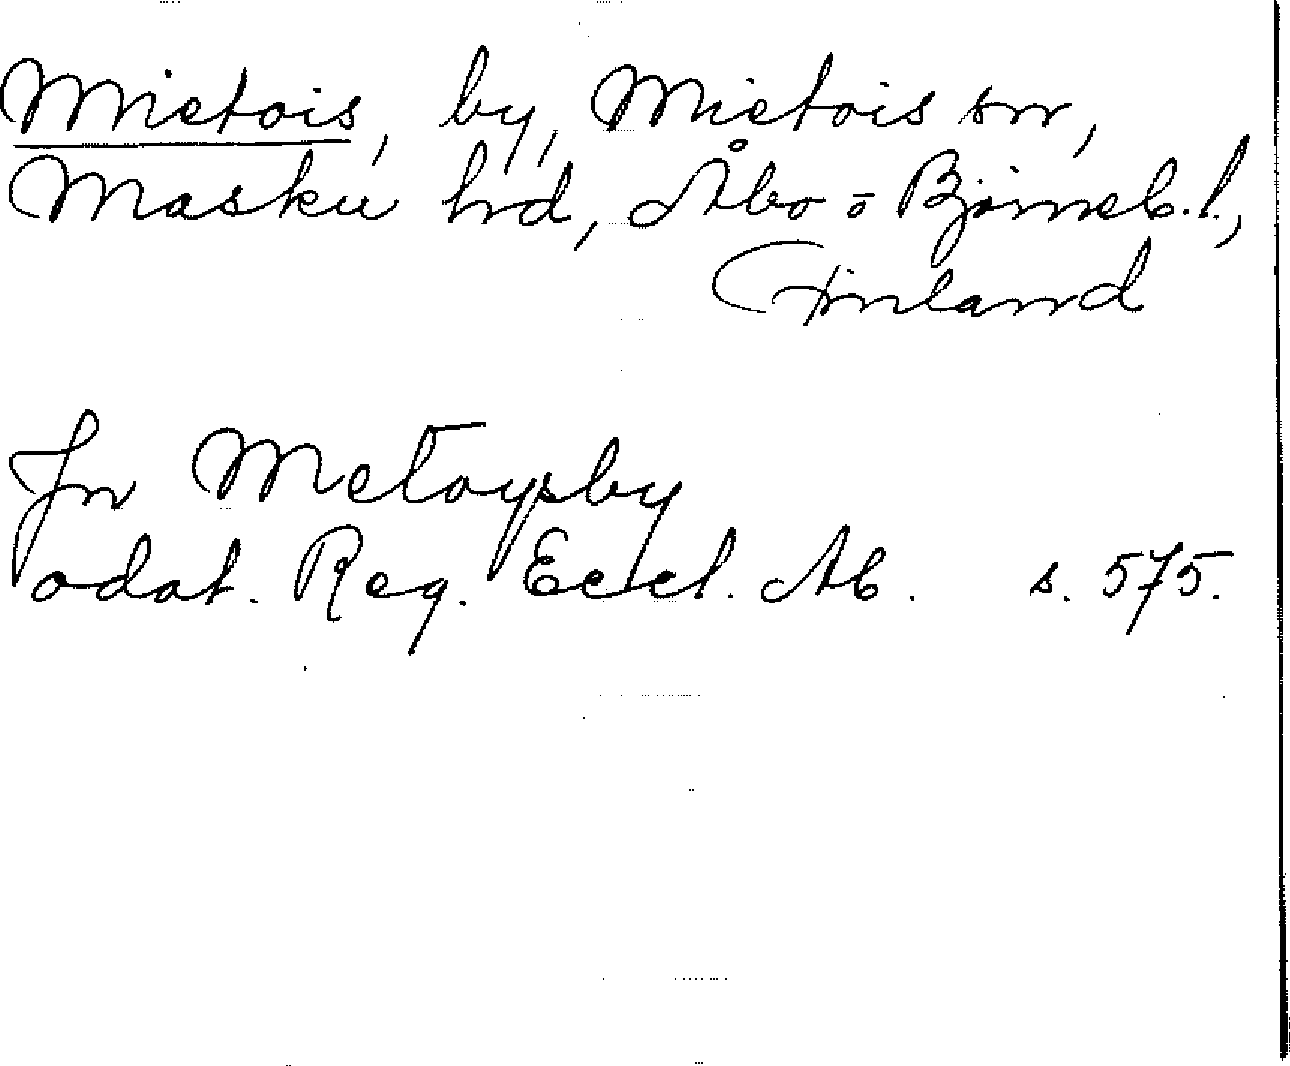 Mietois, by, Mietois sn,
Masku hd, Åbo o Björneb. l.,
Finland
Jn Metoysby
odat. Reg. Eccl. Ab. s. 575.